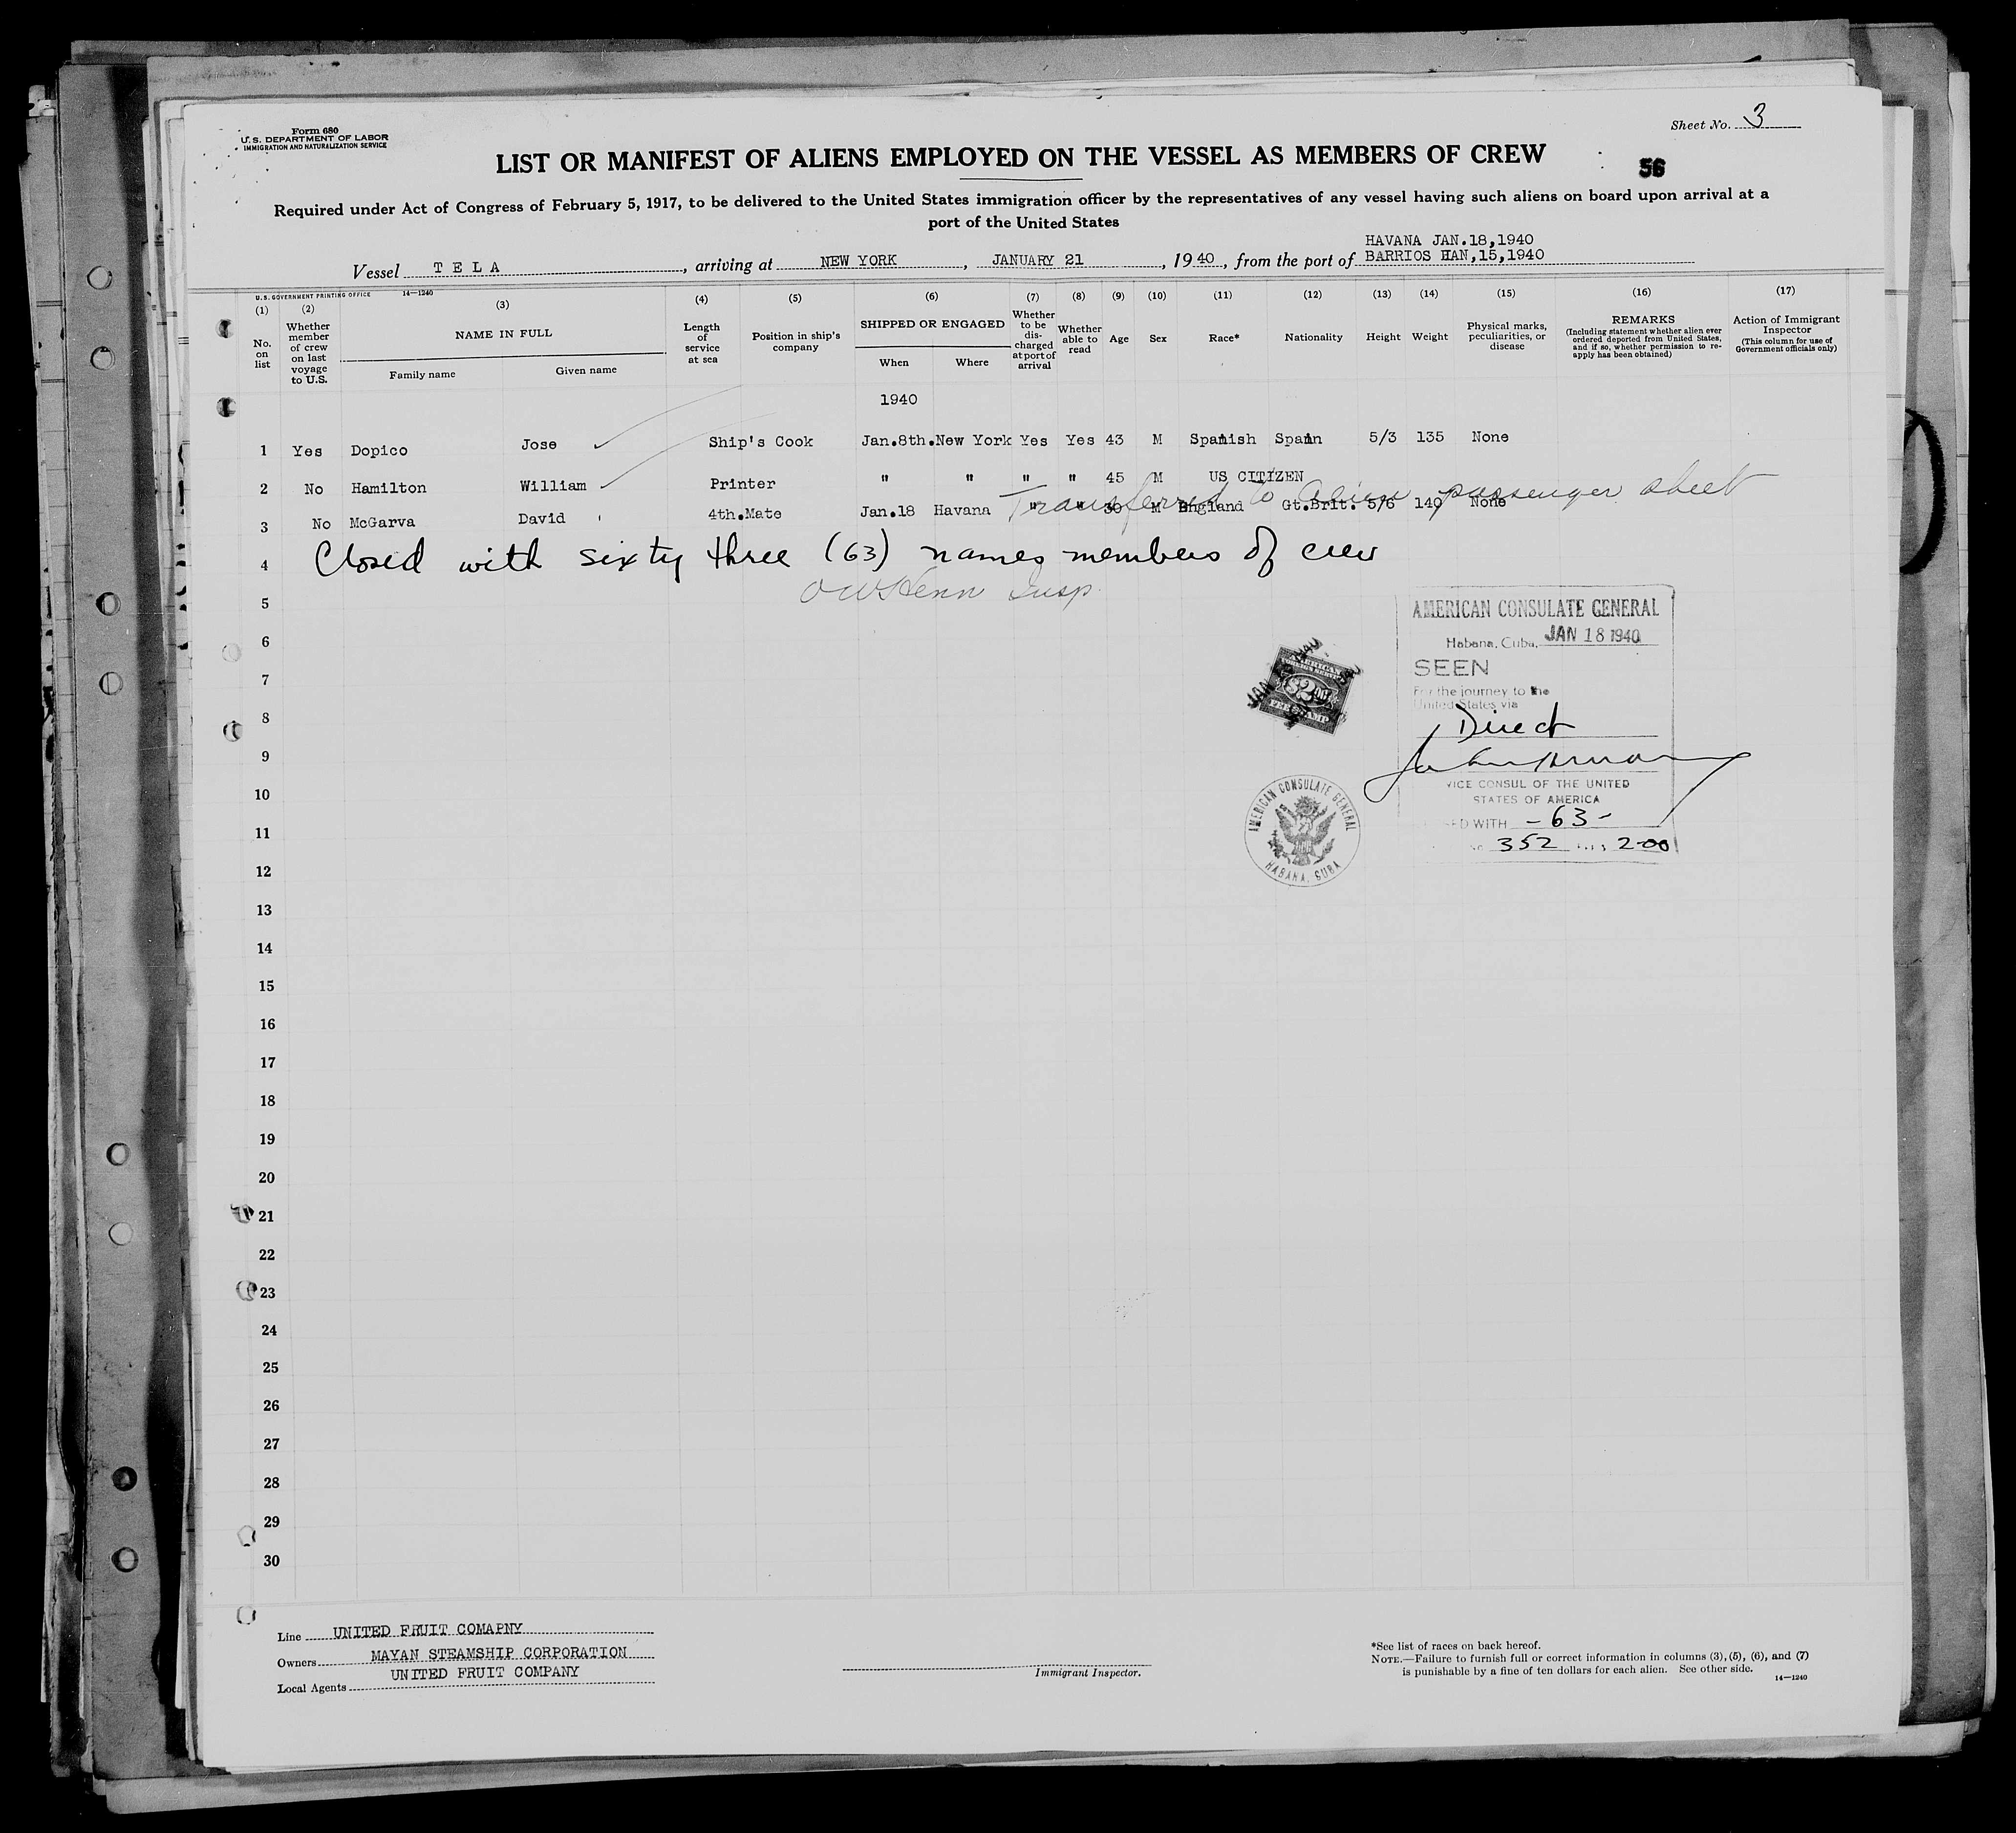 Form 680
U.S. DEPARTMENT OF LABOR
IMMIGRATION AND NATURALIZATION SERVICE
Sheet No. 3
LIST OR MANIFEST OF ALIENS EMPLOYED ON THE VESSEL AS MEMBERS OF CREW
56
Required under Act of Congress of February 5, 1917, to be delivered to the United States immigration officer by the representatives of any vessel having such aliens on board upon arrival at a
port of the United States
HAVANA JAN.18,1940
Vessel TELA, arriving at NEW YORK, JANUARY 21, 1940, from the port of BARRIOS HAN,15,1940
U.S. GOVERNMENT PRINTING OFFICE 14—1240
(1) (2) (3) (4) (5) (6) (7) (8) (9) (10) (11) (12) (13) (14) (15) (16) (17)
No. on list
Whether member of crew on last voyage to U.S.
NAME IN FULL
Family name
Given name
Length of service at sea
Position in ship's company
SHIPPED OR ENGAGED
When
Where
Whether to be discharged at port of arrival
Whether able to read
Age
Sex
Race*
Nationality
Height
Weight
Physical marks, peculiarities, or disease
REMARKS
(Including statement whether alien ever ordered deported from United States, and if so, whether permission to re-apply has been obtained)
Action of Immigrant Inspector
(This column for use of Government officials only)
1940
1 Yes Dopico Jose Ship's Cook Jan.8th. New York Yes Yes 43 M Spanish Spain 5/3 135 None
2 No Hamilton William Printer " " " " 45 M US CITIZEN
Transferred to alien passenger sheet
3 No McGarva David 4th.Mate Jan.18 Havana " " 30 M England Gt.Brit. 5/6 140 None
4 Closed with sixty three (63) names members of crew
Insp.
5
6
7
8
9
10
11
12
13
14
15
16
17
18
19
20
21
22
23
24
25
26
27
28
29
30
AMERICAN CONSULATE GENERAL
Habana, Cuba, JAN 18 1940
SEEN
For the journey to the
United States via
Direct
VICE CONSUL OF THE UNITED
STATES OF AMERICA
WITH -63-
No 352 2.00
AMERICAN
$2.00
FEE STAMP
AMERICAN CONSULATE GENERAL
HABANA, CUBA
Line UNITED FRUIT COMAPNY
Owners MAYAN STEAMSHIP CORPORATION
UNITED FRUIT COMPANY
Local Agents
Immigrant Inspector.
*See list of races on back hereof.
NOTE.—Failure to furnish full or correct information in columns (3), (5), (6), and (7)
is punishable by a fine of ten dollars for each alien. See other side.
14—1240